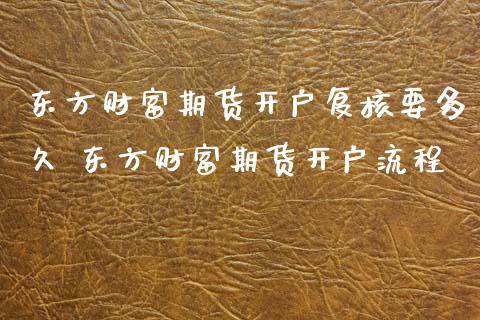 东方财富期货开户复核要多
久 东方财富期货开户流程